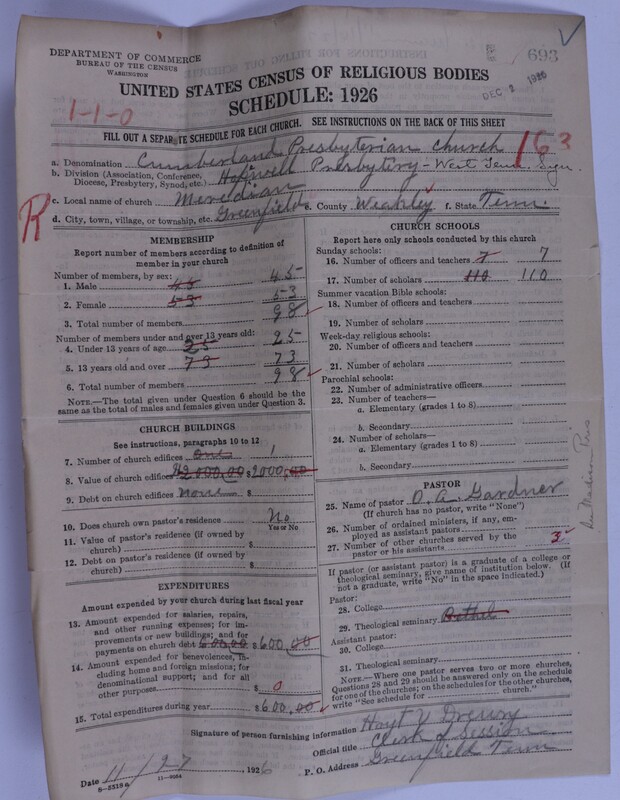 DEPARTMENT OF COMMERCE
BUREAU OF THE CENSUS
WASHINGTON
693
DEC 2 1926
UNITED STATES CENSUS OF RELIGIOUS BODIES
SCHEDULE: 1926
1-1-0
FILL OUT A SEPARATE SCHEDULE FOR EACH CHURCH. SEE INSTRUCTIONS ON THE BACK OF THIS SHEET
163
a. Denomination Cumberland Presbyterian church
b. Division (Association, Conference, Diocese, Presbytery, Synod, etc.) Hopewell Presbytery - West Tenn. Syn.
R
c. Local name of church Meredian
d. City, town, village, or township, etc. Greenfield e. County Weakley f. State Tenn.
MEMBERSHIP
Report number of members according to definition of
member in your church
Number of members, by sex:
1. Male 45 45
2. Female 53 53
3. Total number of members 98
Number of members under and over 13 years old:
4. Under 13 years of age 25 25
5. 13 years old and over 73 73
6. Total number of members 98
NOTE.—The total given under Question 6 should be the
same as the total of males and females given under Question 3.
CHURCH BUILDINGS
See instructions, paragraphs 10 to 12
7. Number of church edifices one 1
8. Value of church edifices $2000.00 $2000.00
9. Debt on church edifices none $
10. Does church own pastor's residence No
Yes or No
11. Value of pastor's residence (if owned by
church) $
12. Debt on pastor's residence (if owned by
church) $
EXPENDITURES
Amount expended by your church during last fiscal year
13. Amount expended for salaries, repairs,
and other running expenses; for im-
provements or new buildings; and for
payments on church debt 600.00 $600.00
14. Amount expended for benevolences, in-
cluding home and foreign missions; for
denominational support; and for all
other purposes $ 0
15. Total expenditures during year $600.00
CHURCH SCHOOLS
Report here only schools conducted by this church
Sunday schools:
16. Number of officers and teachers 7 7
17. Number of scholars 110 110
Summer vacation Bible schools:
18. Number of officers and teachers
19. Number of scholars
Week-day religious schools:
20. Number of officers and teachers
21. Number of scholars
Parochial schools:
22. Number of administrative officers
23. Number of teachers—
a. Elementary (grades 1 to 8)
b. Secondary
24. Number of scholars—
a. Elementary (grades 1 to 8)
b. Secondary
PASTOR
25. Name of pastor O. A. Gardner
(If church has no pastor, write "None")
26. Number of ordained ministers, if any, em-
ployed as assistant pastors
27. Number of other churches served by the
pastor or his assistants 3
If pastor (or assistant pastor) is a graduate of a college or
theological seminary, give name of institution below. (If
not a graduate, write "No" in the space indicated.)
Pastor:
28. College
29. Theological seminary Bethel
Assistant pastor:
30. College
31. Theological seminary
NOTE.—Where one pastor serves two or more churches,
Questions 28 and 29 should be answered only on the schedule
for one of the churches; on the schedules for the other churches,
write "See schedule for church."
Signature of person furnishing information Hoyt V Drewry
Official title Clerk of Session
Date 11/27, 1926 P. O. Address Greenfield Tenn
S-5319a 11-9054